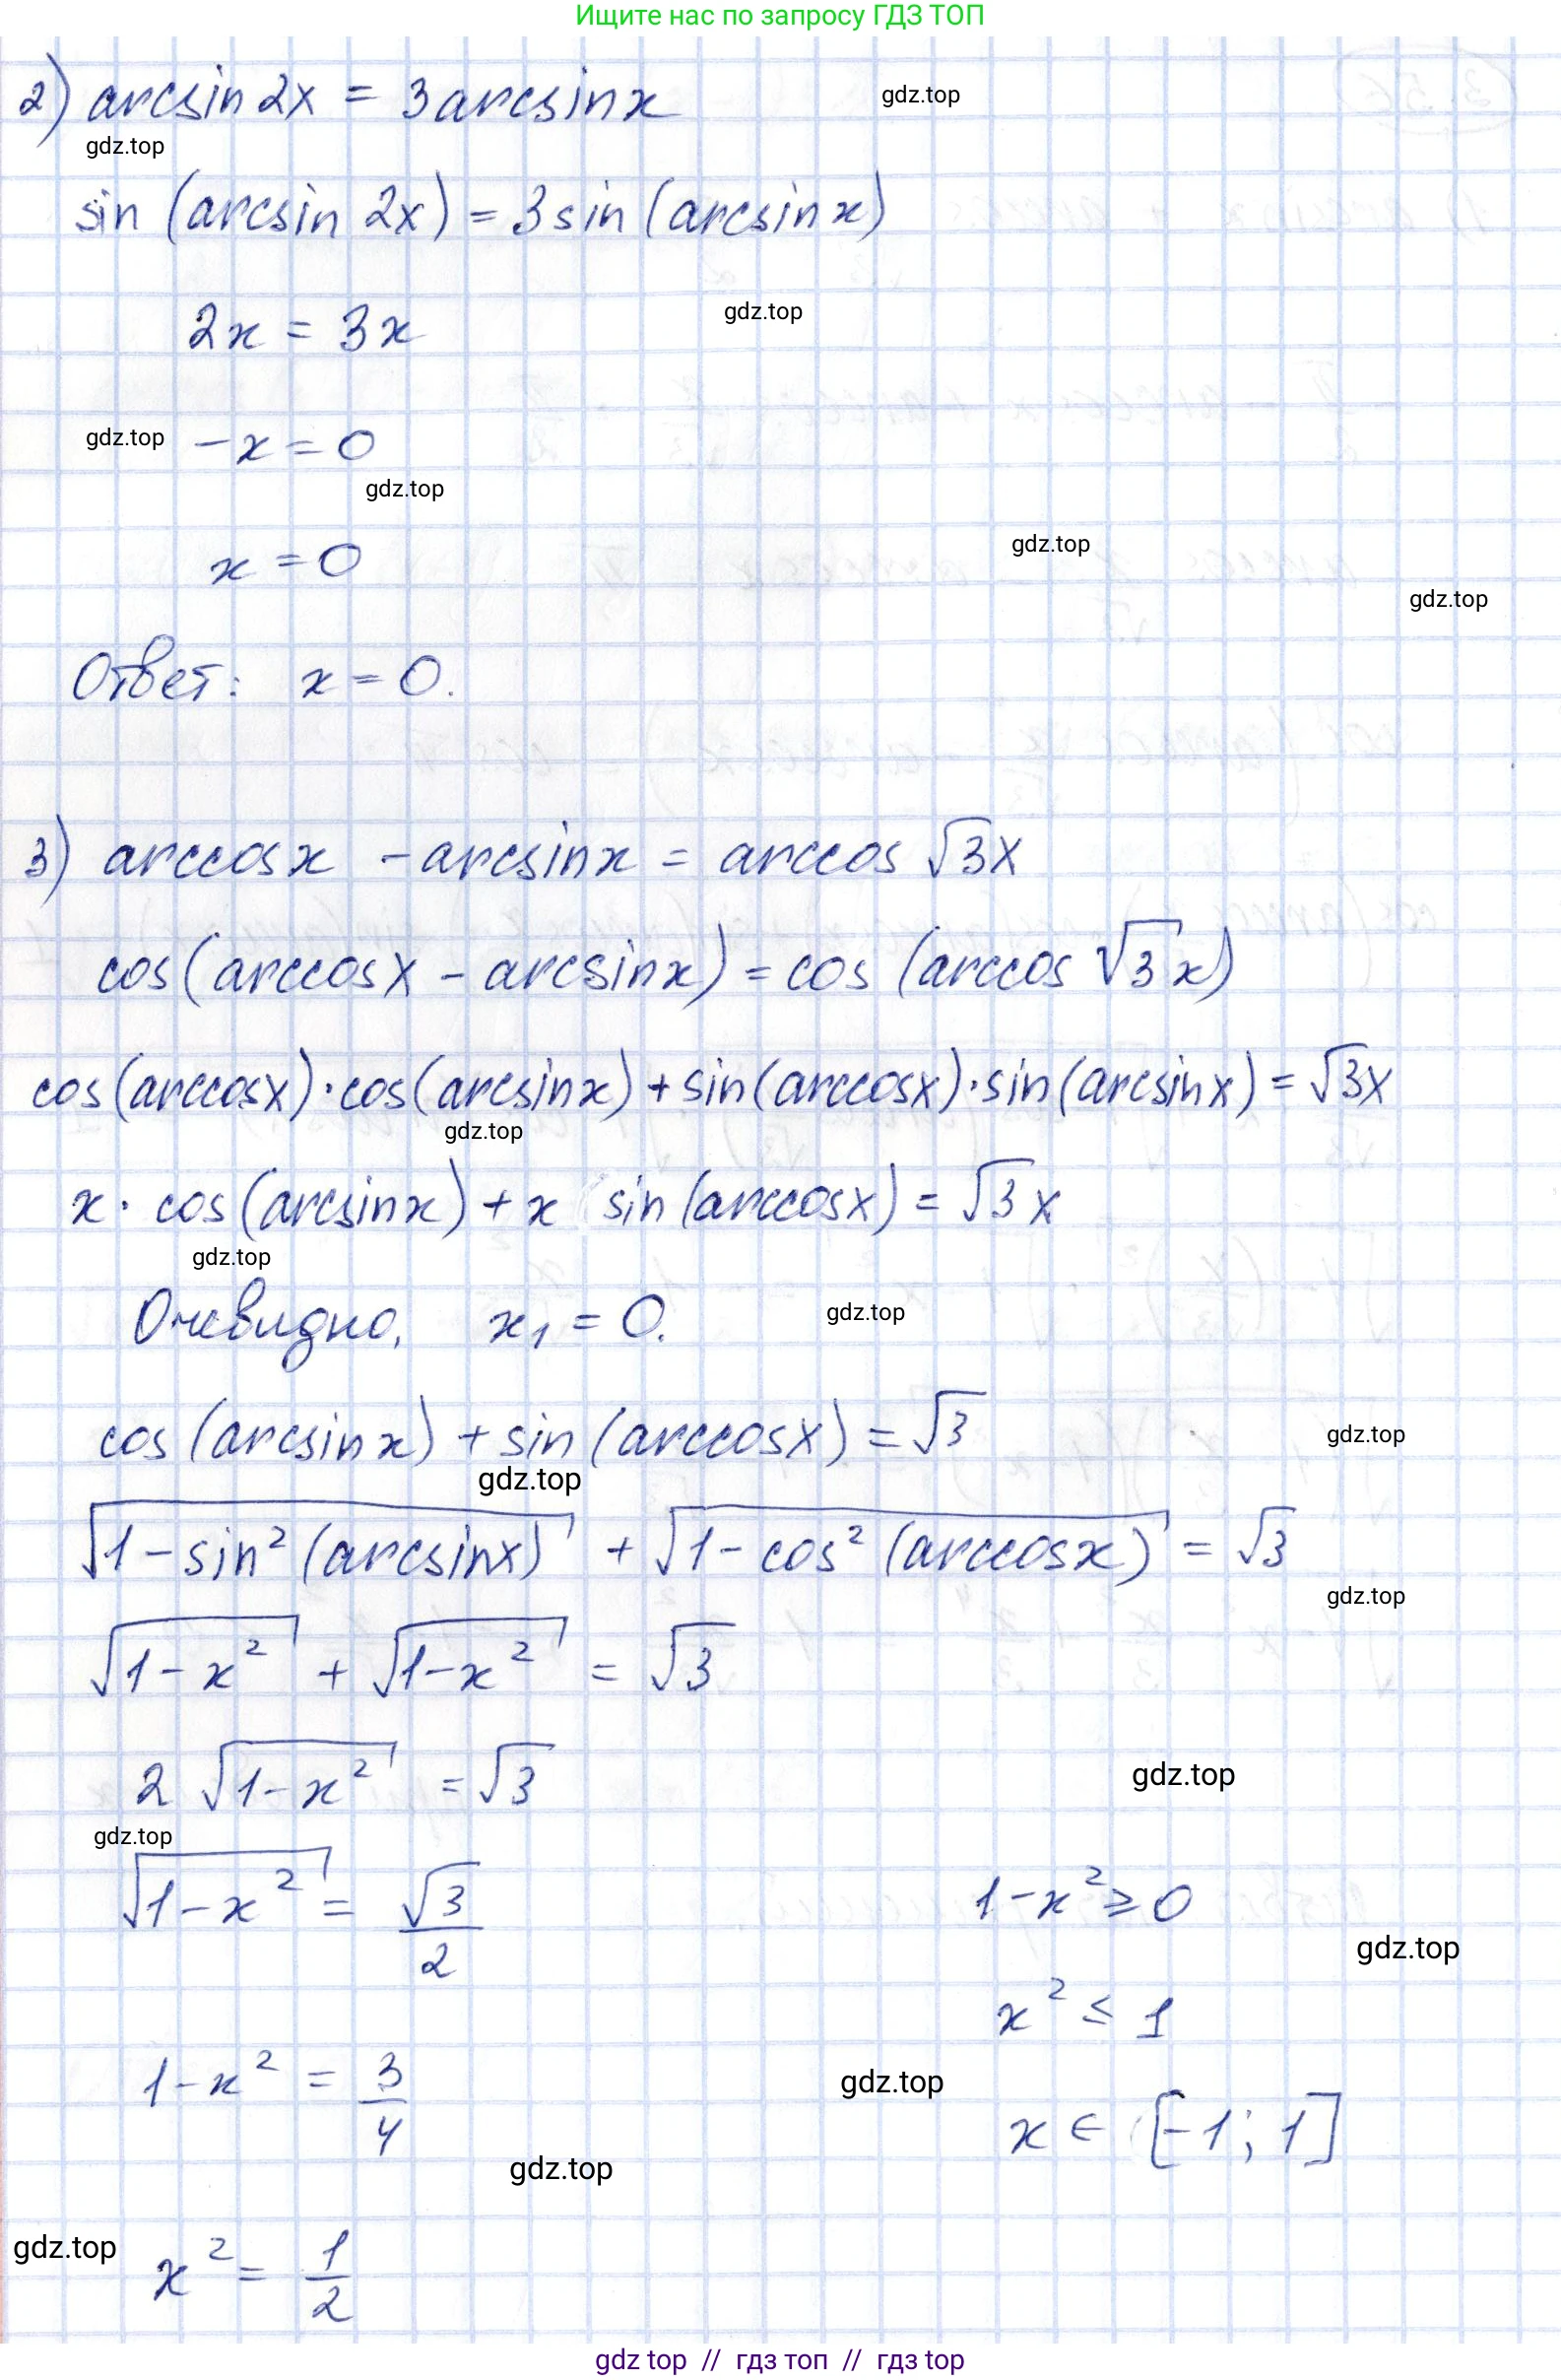 Ищите нас по запросу ГДЗ ТОП
2) arcsin 2x = 3 arcsin x
gdz.top
gdz.top
sin (arcsin 2x) = 3 sin (arcsin x)
2x = 3x
gdz.top
gdz.top
-x = 0
gdz.top
x = 0
gdz.top
gdz.top
Ответ: x = 0.
3) arccos x - arcsin x = arccos √3x
cos (arccos x - arcsin x) = cos (arccos √3 x)
cos (arccos x) · cos (arcsin x) + sin (arccos x) · sin (arcsin x) = √3x
gdz.top
x · cos (arcsin x) + x sin (arccos x) = √3 x
gdz.top
Очевидно, x₁ = 0.
gdz.top
cos (arcsin x) + sin (arccos x) = √3
gdz.top
gdz.top
√(1 - sin² (arcsin x)) + √(1 - cos² (arccos x)) = √3
gdz.top
√(1 - x²) + √(1 - x²) = √3
2 √(1 - x²) = √3
gdz.top
gdz.top
√(1 - x²) = √3/2
1 - x² ≥ 0
gdz.top
x² ≤ 1
1 - x² = 3/4
gdz.top
x ∈ [-1; 1]
gdz.top
gdz.top
x² = 1/2
gdz top // гдз топ // гдз top